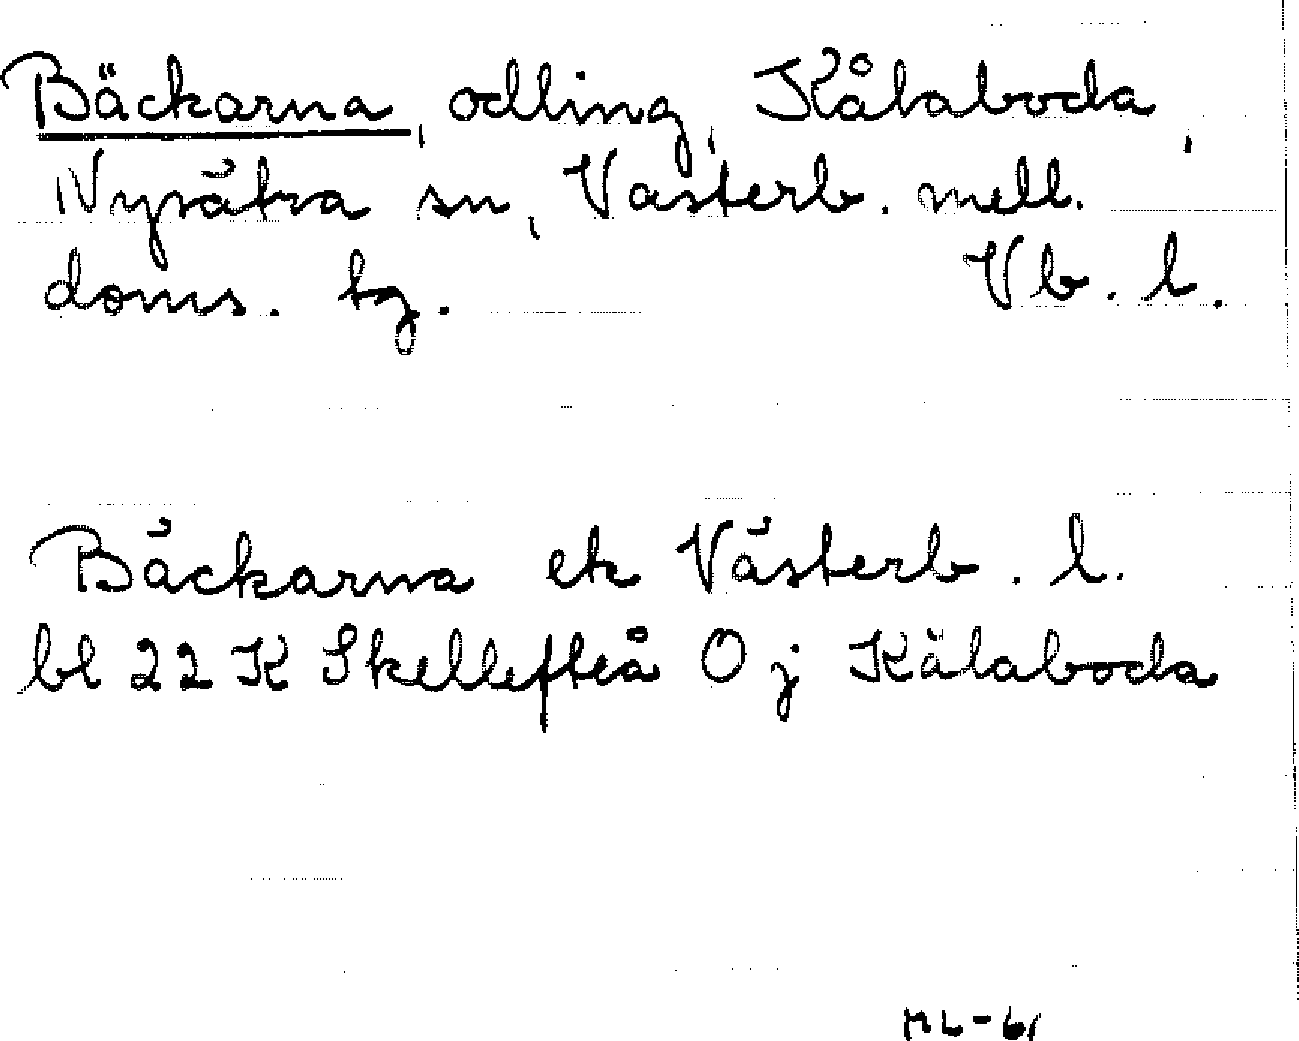 Bäckarna, odling, Kålaboda,
Nysätra sn, Västerb. mell.
doms. tg. Vb. l.
Bäckarna ek Västerb. l.
bl 22 K Skellefteå O j Kålaboda
ML-61